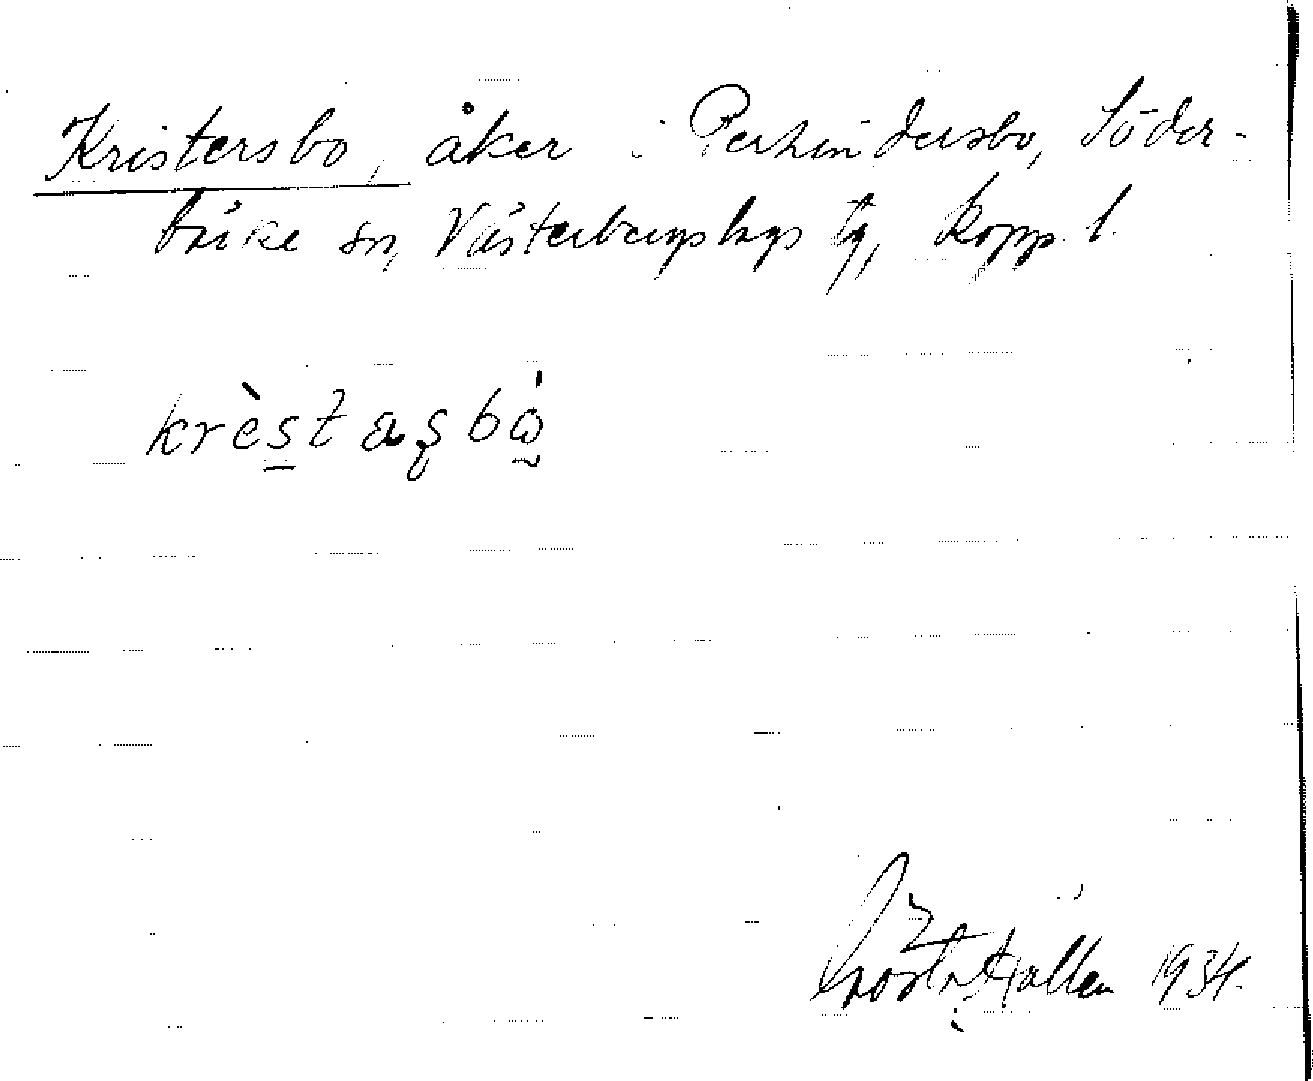 Kristersbo, åker i Perhindersbo, Söder-
bärke sn, Västerbergslags tg, Kopp. l.
krèstaʂbὼ
Gösta Hällen 1934.